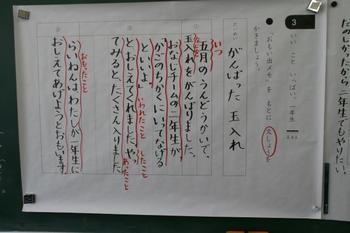 3
いい こと いっぱい、一年生
「おもい出メモ」を もとに 文しょうを
かきましょう。
がんばった 玉入れ
いつ
五月の うんどうかいで、
玉入れを がんばりました。
おなじチームの 二年生が、
かごの ちかくに いって なげる
といいよ。
いわれたこと
とおしえてくれました。や
したこと
あったこと
てみると、たくさん入りました
おもったこと
らいねんは、わたしが 一年生に
おしえて あげようと おもいます
たのしかったから
二年生でもやりたい。